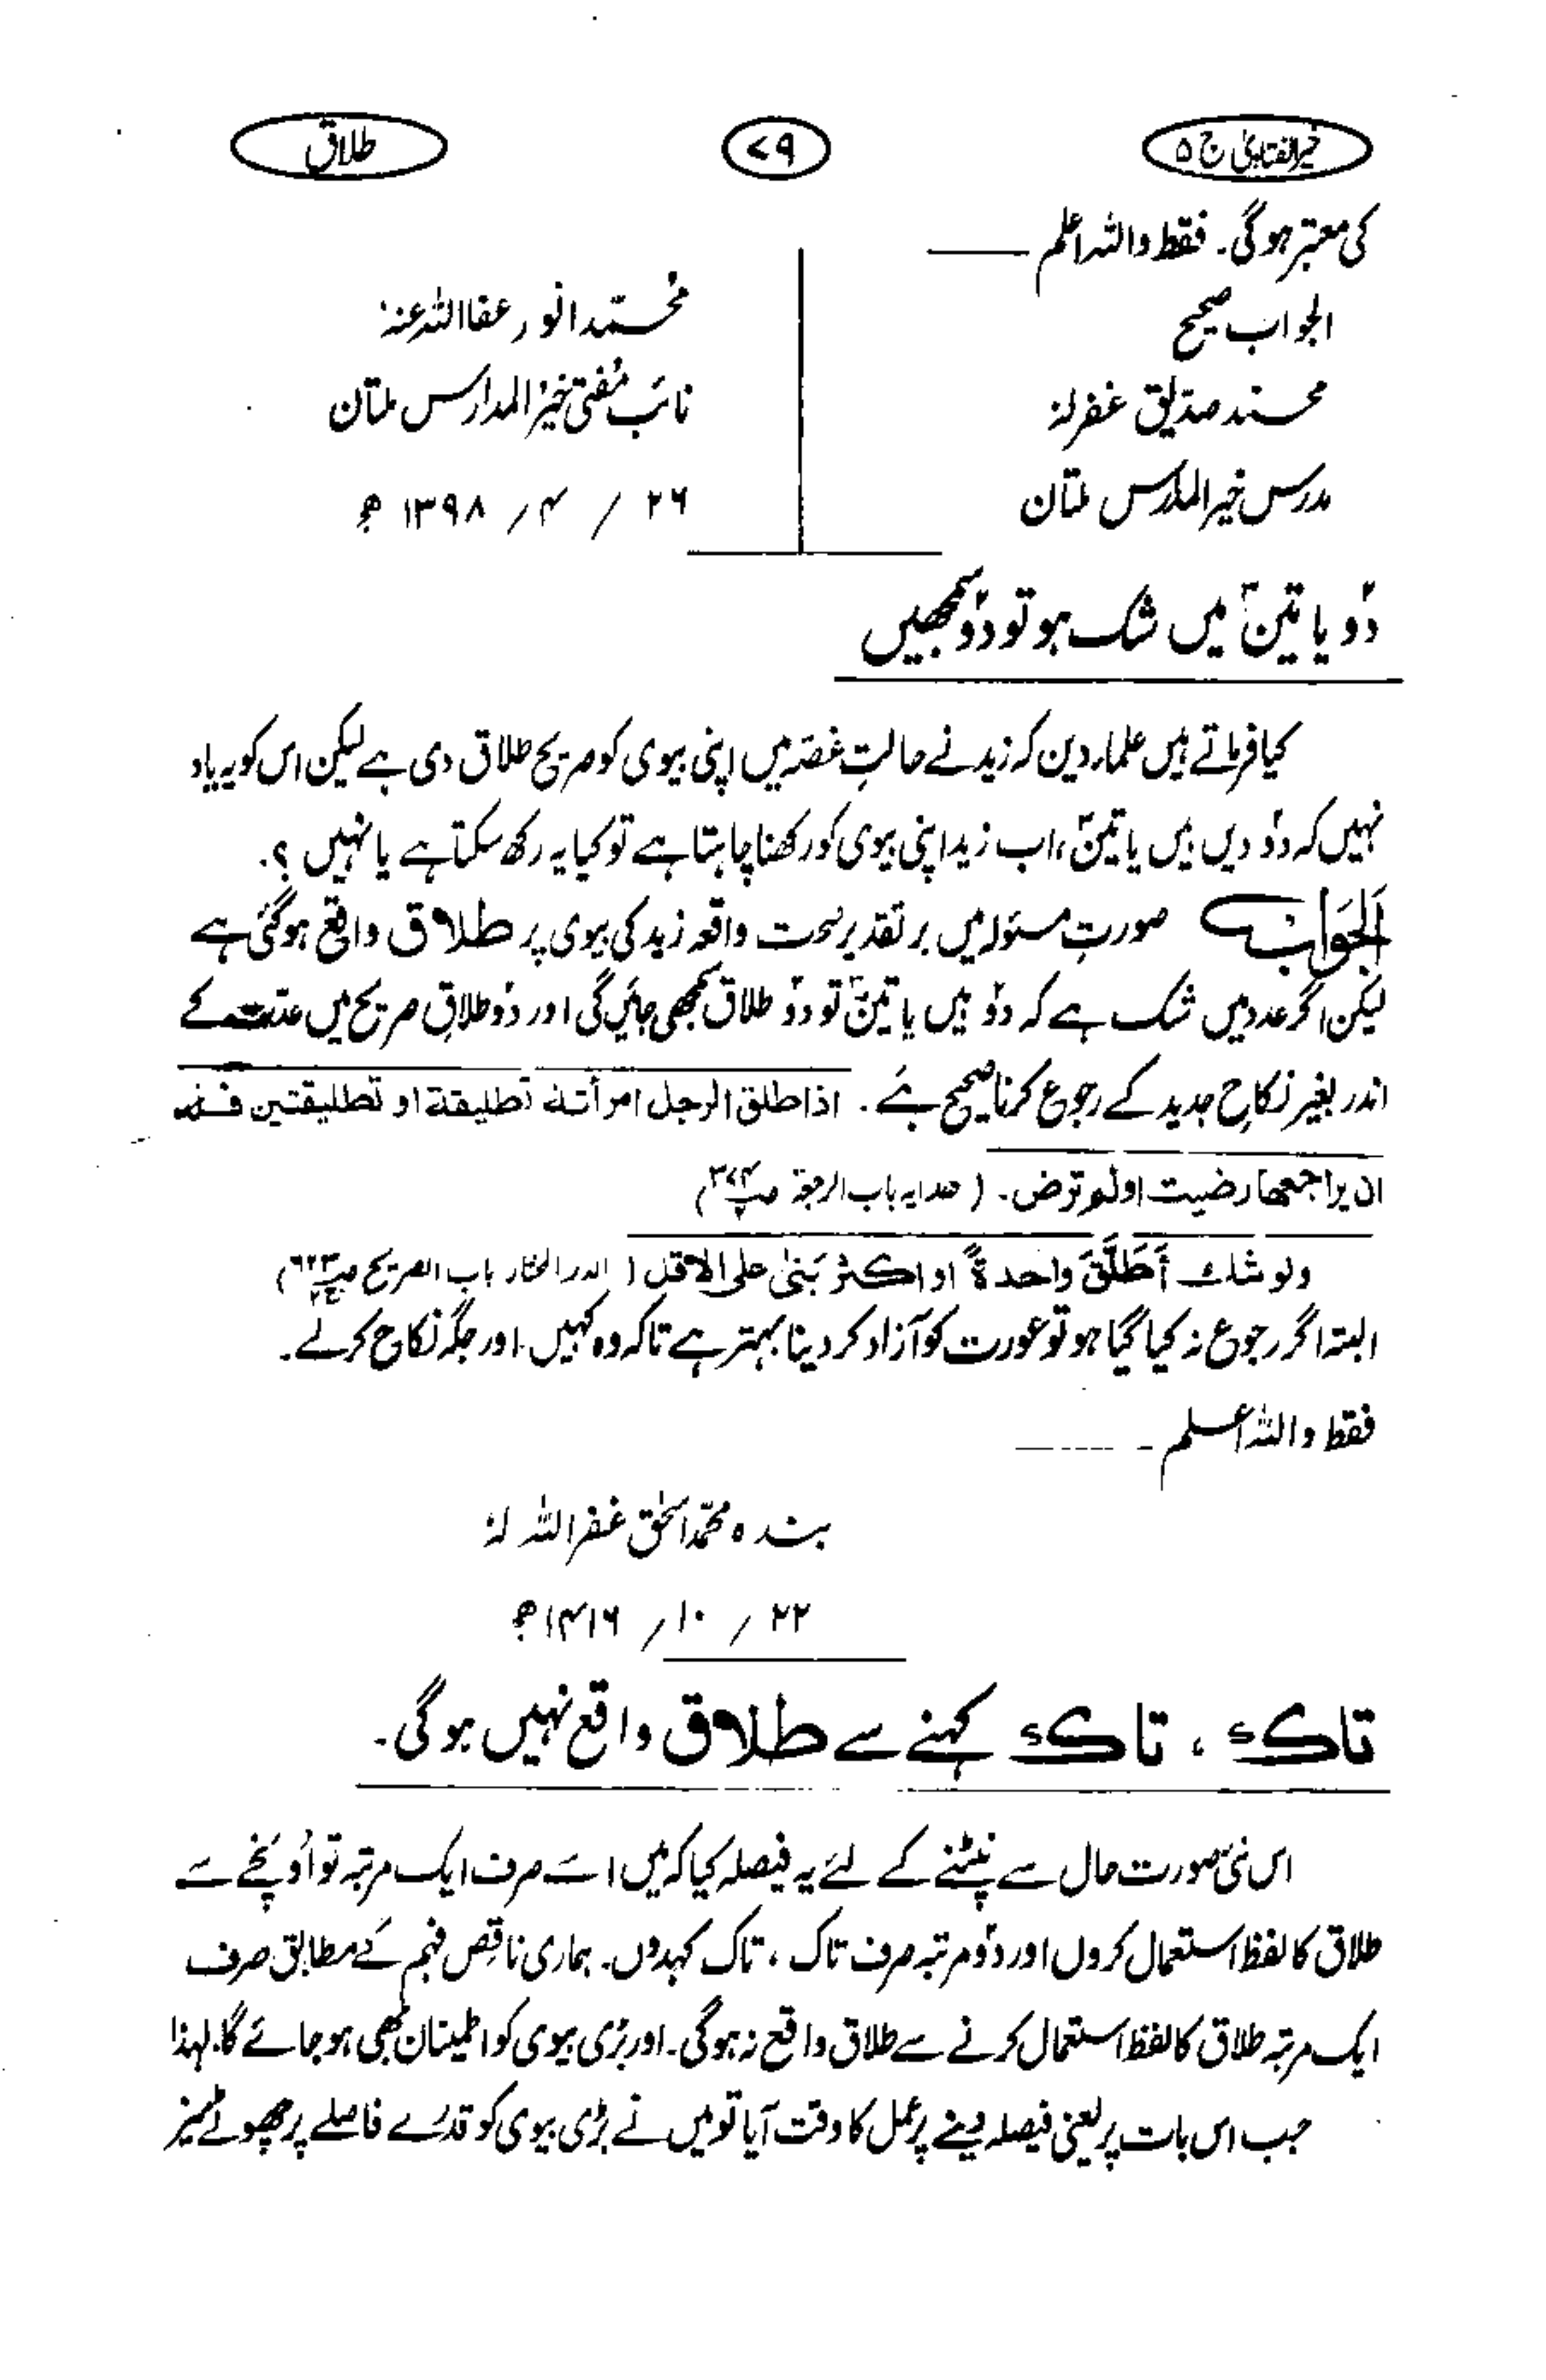 خیر الفتاویٰ ج ۵
۷۹
طلاق
کی معتبر ہوگی۔ فقط واللہ اعلم
الجواب صحیح
محمد صدیق غفرلہٗ
مدرس خیر المدارس ملتان
محمد انور عفا اللہ عنہٗ
نائب مفتی خیر المدارس ملتان
۲۶ / ۴ / ۱۳۹۸ ھ
دو یا تین میں شک ہو تو دو سمجھیں
کیا فرماتے ہیں علماء دین کہ زید نے حالتِ غصہ میں اپنی بیوی کو صریح طلاق دی ہے لیکن اس کو یہ یاد
نہیں کہ دو دیں ہیں یا تین، اب زید اپنی بیوی کو رکھنا چاہتا ہے تو کیا یہ رکھ سکتا ہے یا نہیں ؟.
اَلجَوَاب صورتِ مسئولہ میں بر تقدیر صحت واقعہ زید کی بیوی پر طلاق واقع ہوگئی ہے
لیکن اگر عدد میں شک ہے کہ دو ہیں یا تین تو دو طلاق سمجھی جائیں گی اور دو طلاقِ صریح میں عدت کے
اندر بغیر نکاحِ جدید کے رجوع کرنا صحیح ہے ۔ اذا طلق الرجل امرأتہ تطلیقة او تطلیقتین فلہ
ان یراجعھا رضیت اولم ترض۔ ( ھدایہ باب الرجعۃ
ولو شک أَطَلَّقَ وَاحدةً او اکثر بَنیٰ علی الاقل ( الدر المختار باب الصریح
البتہ اگر رجوع نہ کیا گیا ہو تو عورت کو آزاد کر دینا بہتر ہے تاکہ وہ کہیں اور جگہ نکاح کرلے۔
فقط واللہ اعلم۔
بندہ محمد اسحٰق غفر اللہ لہٗ
۲۲ / ۱۰ / ۱۴۱۶ ھ
تاک ، تاک کہنے سے طلاق واقع نہیں ہوگی۔
اس نئی صورت حال سے نپٹنے کے لئے یہ فیصلہ کیا کہ میں اسے صرف ایک مرتبہ تو اُونچے سے
طلاق کا لفظ استعمال کروں اور دو مرتبہ صرف تاک ، تاک کہدوں۔ ہماری ناقص فہم کے مطابق صرف
ایک مرتبہ طلاق کا لفظ استعمال کرنے سے طلاق واقع نہ ہوگی۔ اور بڑی بیوی کو اطمینان بھی ہو جائے گا۔ لہذا
جب اس بات پر یعنی فیصلہ دینے پر عمل کا وقت آیا تو میں نے بڑی بیوی کو قدرے فاصلے پر چھوٹے